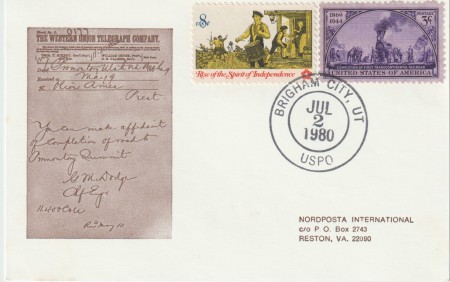 0177
THE WESTERN UNION TELEGRAPH COMPANY.
Promontory
May 9
To Oliver Ames
Prest
You can make affidavit
of completion of road to
Promontory Summit
G M Dodge
Chf Engr
Recd May 10
8¢
Rise of the Spirit of Independence
1869
1944
3¢
COMPLETION OF FIRST TRANSCONTINENTAL RAILROAD
UNITED STATES OF AMERICA
BRIGHAM CITY, UT
JUL
2
1980
USPO
NORDPOSTA INTERNATIONAL
c/o P O. Box 2743
RESTON, VA. 22090